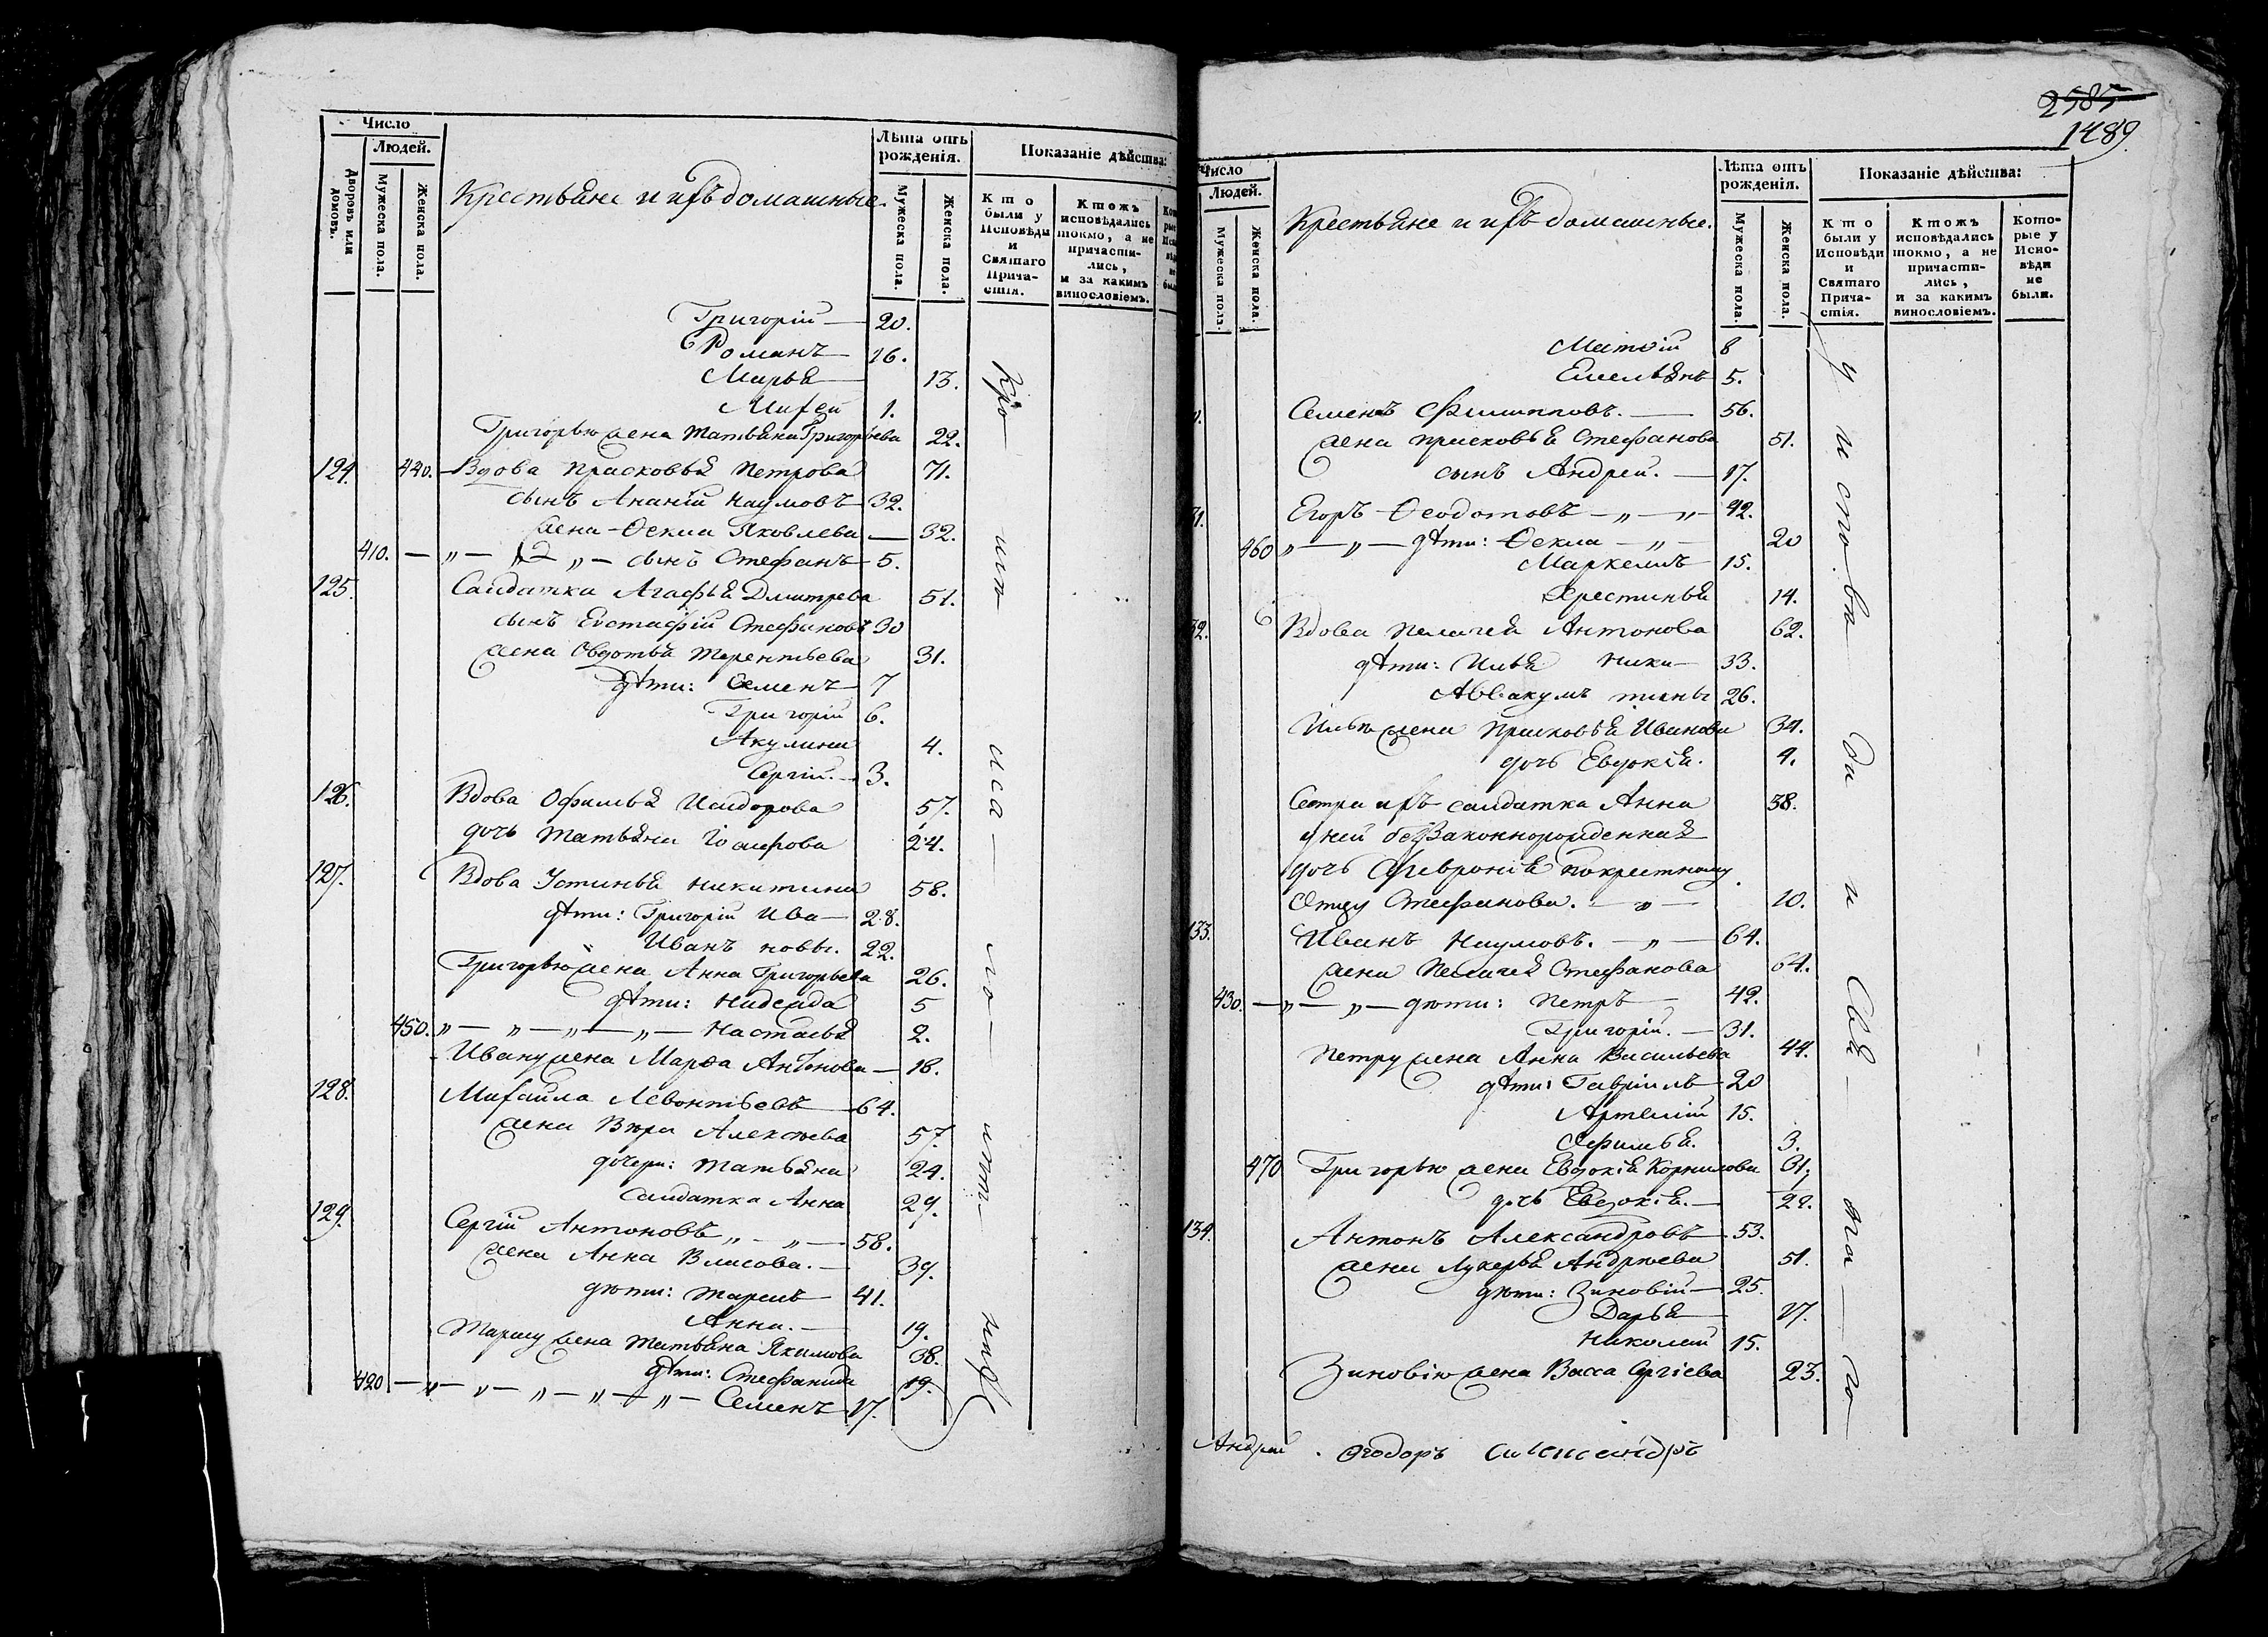 Число
Людей.
Дворовъ или домовъ.
Мужеска пола.
Женска пола.
Крестьяне и ихъ домашные.
Лѣта отъ рожденія.
Мужеска пола.
Женска пола.
Показаніе дѣйства:
Кто были у Исповѣди и Святаго Прича-стія.
Ктожъ исповѣдались токмо, а не причасти-лись, и за какимъ винословіемъ.
Григорій — 20.
Романъ — 16.
Марья — 13.
Михей 1.
Григорью жена Татьяна Григорьева 22.
124. 440. Вдова Прасковья Петрова 71.
сынъ Ананій Наумовъ 32.
жена Ѳекла Яковлева — 32.
410. — „ — „ — сынъ Стефанъ 5.
125. Салдатка Агафья Дмитрева 51.
сынъ Евстафій Стефановъ 30
жена Овдотья Терентьева 31.
дѣти: Семенъ 7
Григорій 6.
Акулина 4.
Сергій. — 3.
126. Вдова Офимья Исидорова 57.
дочь Татьяна 24.
127. Вдова Устинья Никитина 58.
дѣти: Григорій Ива— 28.
Иванъ новы. 22.
Григорью жена Анна Григорьева 26.
дѣти: Надежда 5
450. „ — „ — „ — „ — Настасья 2.
Ивану жена Марѳа Антонова — 18.
128. Михайла Левонтьевъ 64.
жена Вѣра Алексѣева 57.
дочери: Татьяна 24.
Салдатка Анна 29.
129. Сергій Антоновъ „ — „ — 58.
жена Анна Власова. — 39.
дѣти: Тарасъ 41.
Анна. — 19.
Тарасу жена Татьяна Якимова 38.
дѣти: Стефанида 19.
420 — „ — „ — „ — „ — „ — Семенъ 17.
2585
1489.
Число
Людей.
Мужеска пола.
Женска пола.
Крестьяне и ихъ домашные.
Лѣта отъ рожденія.
Мужеска пола.
Женска пола.
Показаніе дѣйства:
Кто были у Исповѣди и Святаго Прича-стія.
Ктожъ исповѣдались токмо, а не причасти-лись, и за какимъ винословіемъ.
Кото-рые у Испо-вѣди не были.
Матѳій 8
Емельянъ 5.
Семенъ Филипповъ. — 56.
жена Прасковья Стефанова 51.
сынъ Андрей. — 17.
Егоръ Ѳеодотовъ — „ — „ — 42.
460 „ — „ — дѣти: Ѳекла — „ — 20
Маркеллъ 15.
Христинья 14.
Вдова Пелагея Антонова 62.
дѣти: Илья Ники— 33.
Аввакумъ тины 26.
Илью жена Прасковья Иванова 34.
дочь Евдокія. 4.
Сестра ихъ салдатка Анна 38.
у ней беззаконнорожденная
дочь Февронія по крестному
Отцу Стефанова. — „ — 10.
133. Иванъ Наумовъ. — „ — 64.
жена Пелагея Стефанова 64.
430. — „ — „ — дѣти: Петръ 42.
Григорій. — 31.
Петру жена Анна Васильева 44.
дѣти: Гавріилъ 20
Артемій 15.
Офимья. 3.
470 Григорью жена Евдокія Корнилова 31.
дочь Евдокія. — 22.
134. Антонъ Александровъ 53.
жена Лукерья Андрѣева 51.
дѣти: Зиновій — 25.
Дарья 17.
Николай 15.
Зиновію жена Васса Сргіева 23.
Андрей . Ѳеодоръ Александръ